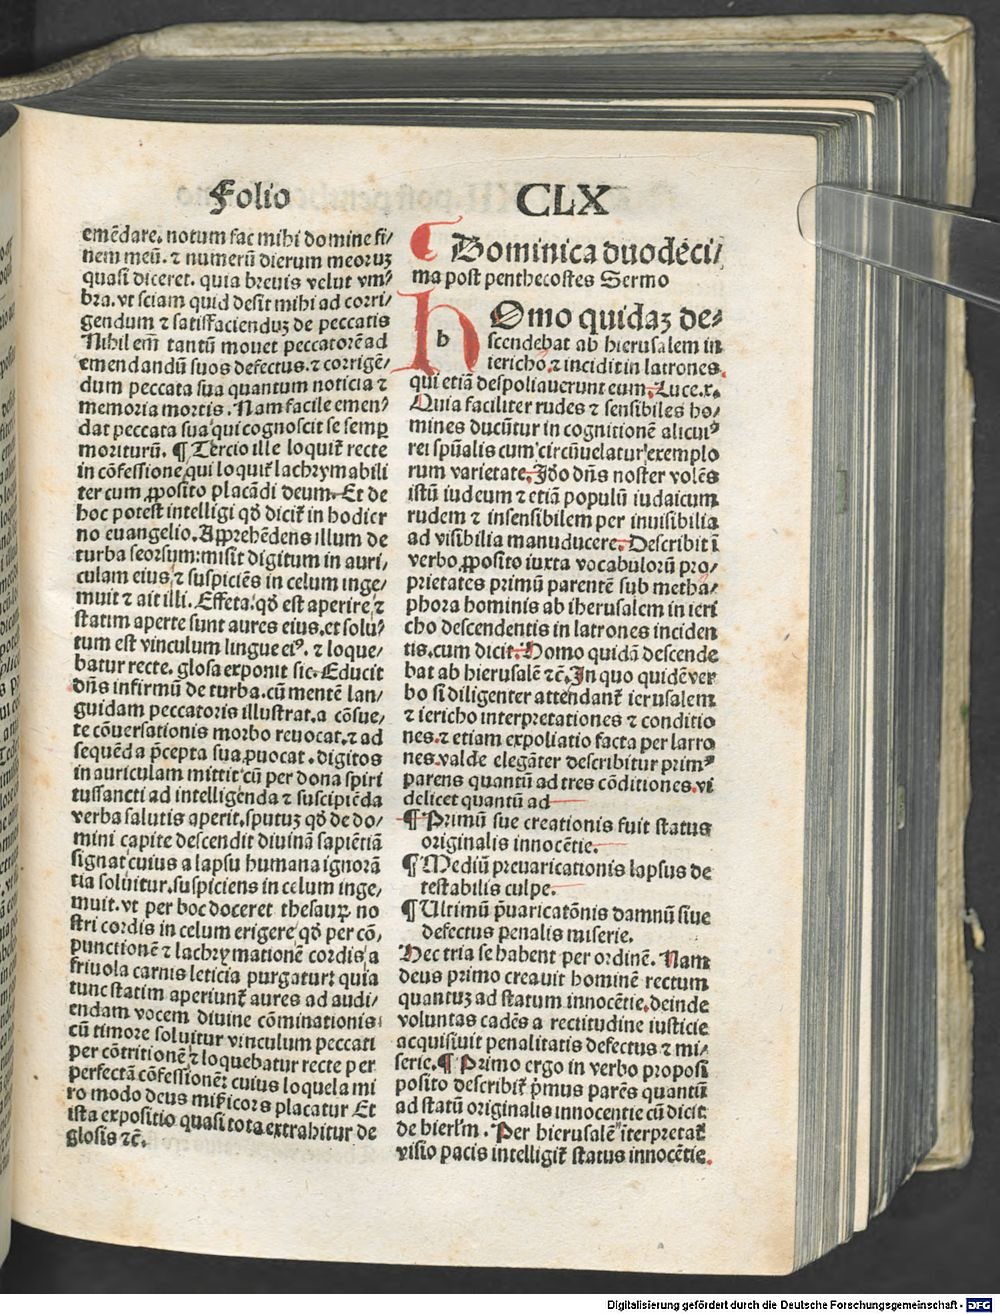 Folio CLX
emēdare. notum fac mihi domine fi⸗
nem meū. ⁊ numerū dierum meoruꝫ
quasi diceret. quia breuis velut vm⸗
bra. vt sciam quid desit mihi ad corri⸗
gendum ⁊ satisfacienduꝫ de peccatis
Nihil em̄ tantū mouet peccatorē ad
emendandū suos defectus. ⁊ corrigē⸗
dum peccata sua quantum noticia ⁊
memoria mortis. Nam facile emen⸗
dat peccata sua qui cognoscit se semꝑ
moriturū. ¶ Tercio ille loquit̄ recte
in cōfessione qui loquit̄ lachrymabili
ter cum ꝓposito placādi deum. Et de
hoc potest intelligi qđ dicit̄ in hodier
no euangelio. Apprehēdens illum de
turba seorsum: misit digitum in auri⸗
culam eius, ⁊ suspiciēs in celum inge⸗
muit ⁊ ait illi. Effeta. qđ est aperire, ⁊
statim aperte sunt aures eius. et solu⸗
tum est vinculum lingue eiꝰ. ⁊ loque⸗
batur recte. glosa exponit sic. Educit
dn̄s infirmū de turba. cū mentē lan⸗
guidam peccatoris illustrat. a cōsue⸗
te cōuersationis morbo reuocat. ⁊ ad
sequēda p̄cepta sua ꝓuocat. digitos
in auriculam mittit cū per dona spiri
tussancti ad intelligēda ⁊ suscipiēda
verba salutis aperit. sputuꝫ qđ de do⸗
mini capite descendit diuinā sapiētiā
signat cuius a lapsu humana ignorā
tia soluitur. suspiciens in celum inge⸗
muit. vt per hoc doceret thesauꝝ no
stri cordis in celum erigere qđ per cō⸗
punctionē ⁊ lachrymationē cordis a
friuola carnis leticia purgatur: quia
tunc statim aperiunt̄ aures ad audi⸗
endam vocem diuine cōminationis:
cū timore soluitur vinculum peccati
per cōtritionē ⁊ loquebatur recte per
perfectā cōfessionē: cuius loquela mi
ro modo deus mīicors placatur Et
ista expositio quasi tota extrahitur de
glosis ⁊c̄.
¶ Dominica duodeci⸗
ma post penthecostes Sermo
hOmo quidaꝫ de⸗
scendebat ab hierusalem in
iericho. ⁊ incidit in latrones.
qui etiā despoliauerunt eum. Luce. x.
Quia faciliter rudes ⁊ sensibiles ho⸗
mines ducūtur in cognitionē alicuiꝰ
rei spūalis cum circūuelatur exemplo
rum varietate. Jđo dn̄s noster volēs
istū iudeum ⁊ etiā populū iudaicum
rudem ⁊ insensibilem per inuisibilia
ad visibilia manuducere. Describit ī
verbo ꝓposito iuxta vocabulorū pro⸗
prietates primū parentē sub metha⸗
phora hominis ab iherusalem in ieri
cho descendentis in latrones inciden
tis. cum dicit. Homo quidā descende
bat ab hierusalē ⁊c̄. Jn quo quidē ver
bo si diligenter attendant̄ ierusalem
⁊ iericho interpretationes ⁊ conditio
nes. ⁊ etiam expoliatio facta per latro
nes. valde elegāter describitur primꝰ
parens quantū ad tres cōditiones. vi
delicet quantū ad
¶ Primū sue creationis fuit status
originalis innocētie.
¶ Mediū preuaricationis lapsus de
testabilis culpe.
¶ Ultimū p̄uaricatōnis damnū siue
defectus penalis miserie.
Hec tria se habent per ordinē. Nam
deus primo creauit hominē rectum
quantuꝫ ad statum innocētie. deinde
voluntas cadēs a rectitudine iusticie
acquisiuit penalitatis defectus ⁊ mi⸗
serie. ¶ Primo ergo in verbo proposi
posito describit̄ p̄mus parēs quantū
ad statū originalis innocentie cū dicit
de hierl̄m. Per hierusalē iterpretat̄
visio pacis intelligit̄ status innocētie.
b
Digitalisierung gefördert durch die Deutsche Forschungsgemeinschaft - DFG